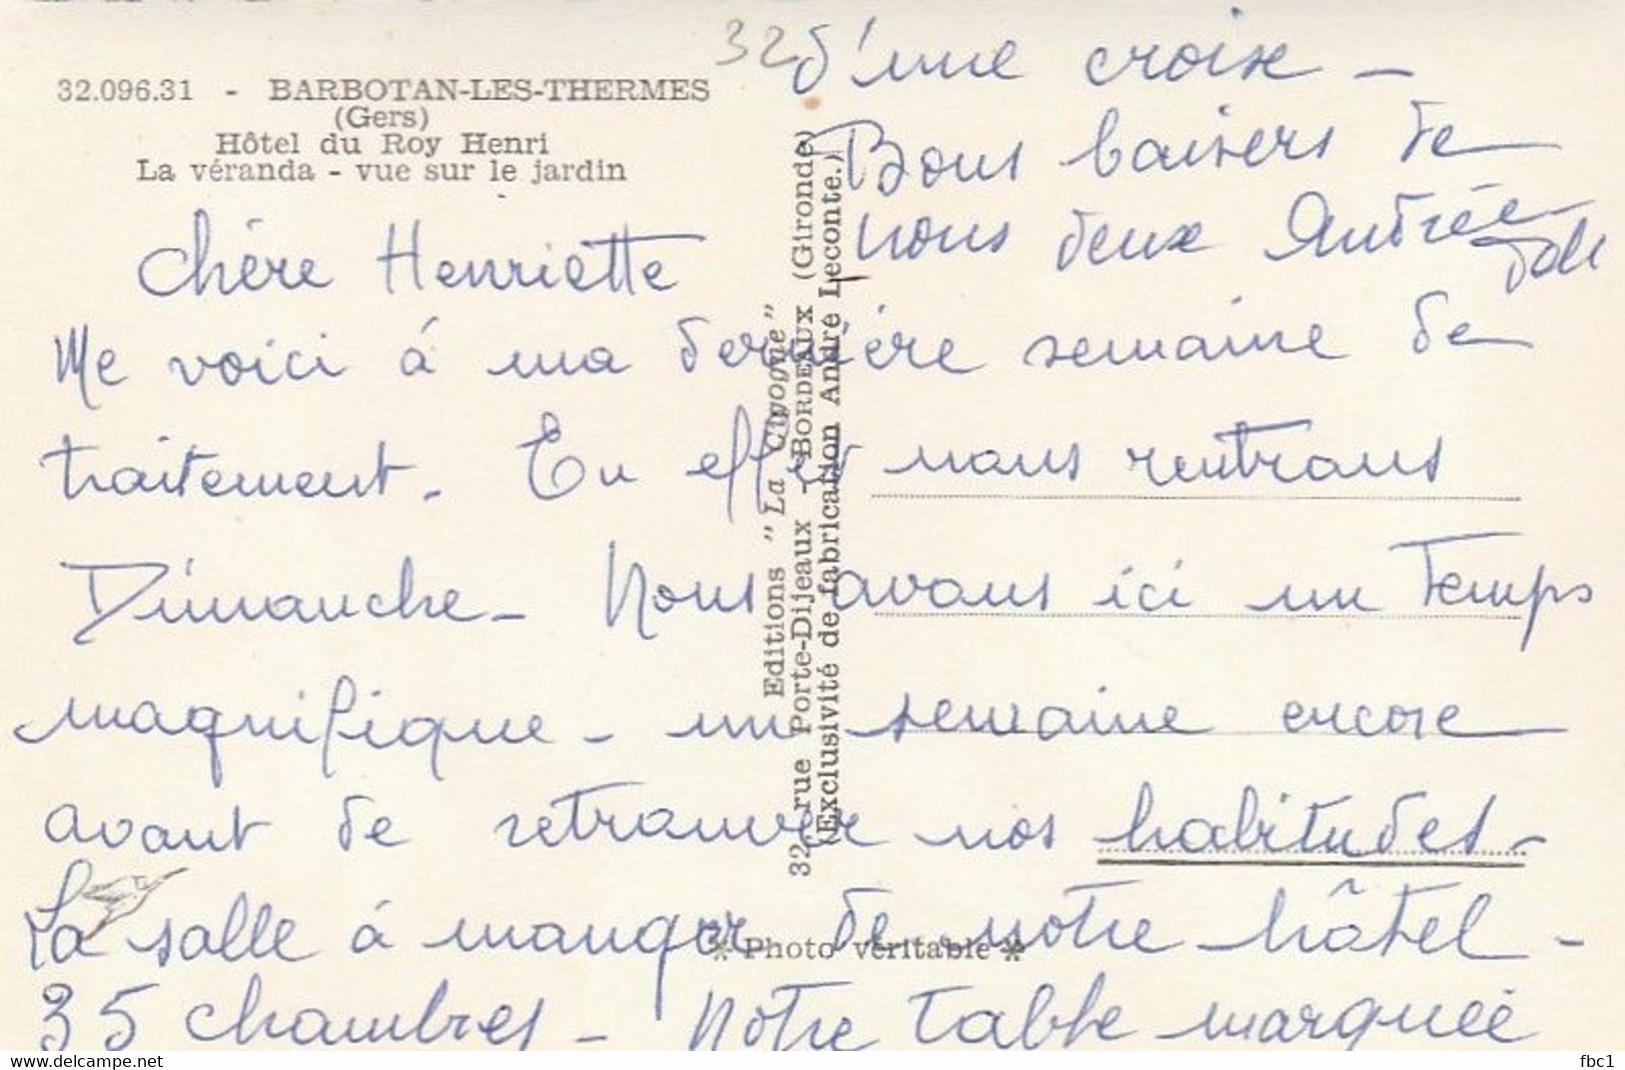 32.096.31 - BARBOTAN-LES-THERMES
(Gers)
Hôtel du Roy Henri
La véranda - vue sur le jardin
Chère Henriette
Me voici à ma dernière semaine de
traitement. En effet nous rentrons
Dimanche - Nous avons ici un temps
magnifique - un semaine encore
avant de retrouver nos habitudes -
La salle à manger de notre hôtel -
35 chambres - Notre table marquée
32
d'une croix -
Bons baisers de
nous deux Andrée
Editions "La Cigogne"
32, rue Porte-Dijeaux - BORDEAUX (Gironde)
(Exclusivité de fabrication André Leconte.)
* Photo véritable *
www.delcampe.net
fbc1